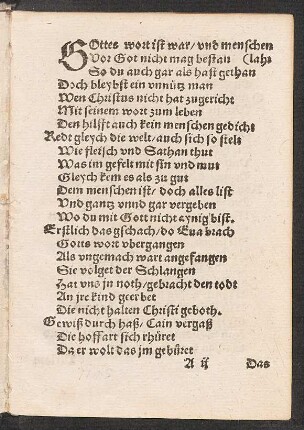 GOttes wort ist war/ vnd menschen
Vor Got nicht mag bestan (lahr
So du auch gar als hast gethan
Doch bleybst ein vnnütz man
Wen Christus nicht hat zugericht
Mit seinem wort zum leben
Den hilfft auch kein menschen gedicht
Redt gleych die welt/ auch sich so stelt
Wie fleisch vnd Sathan thut
Was im gefelt mit sin vnd mut
Gleych kem es als zu gut
Dem menschen ist/ doch alles list
Vnd gantz vnnd gar vergeben
Wo du mit Gott nicht aynig bist.
Erstlich das gschach/ do Eua brach
Gotts wort vbergangen
Als vngemach wart angefangen
Sie volget der Schlangen
Hat vns in noth/ gebracht den todt
An jre kind geerbet
Die nicht halten Christi geboth.
Gewiß durch haß/ Cain vergaß
Die hoffart sich rhüret
Da er wolt das jm gebüret
A ij Das